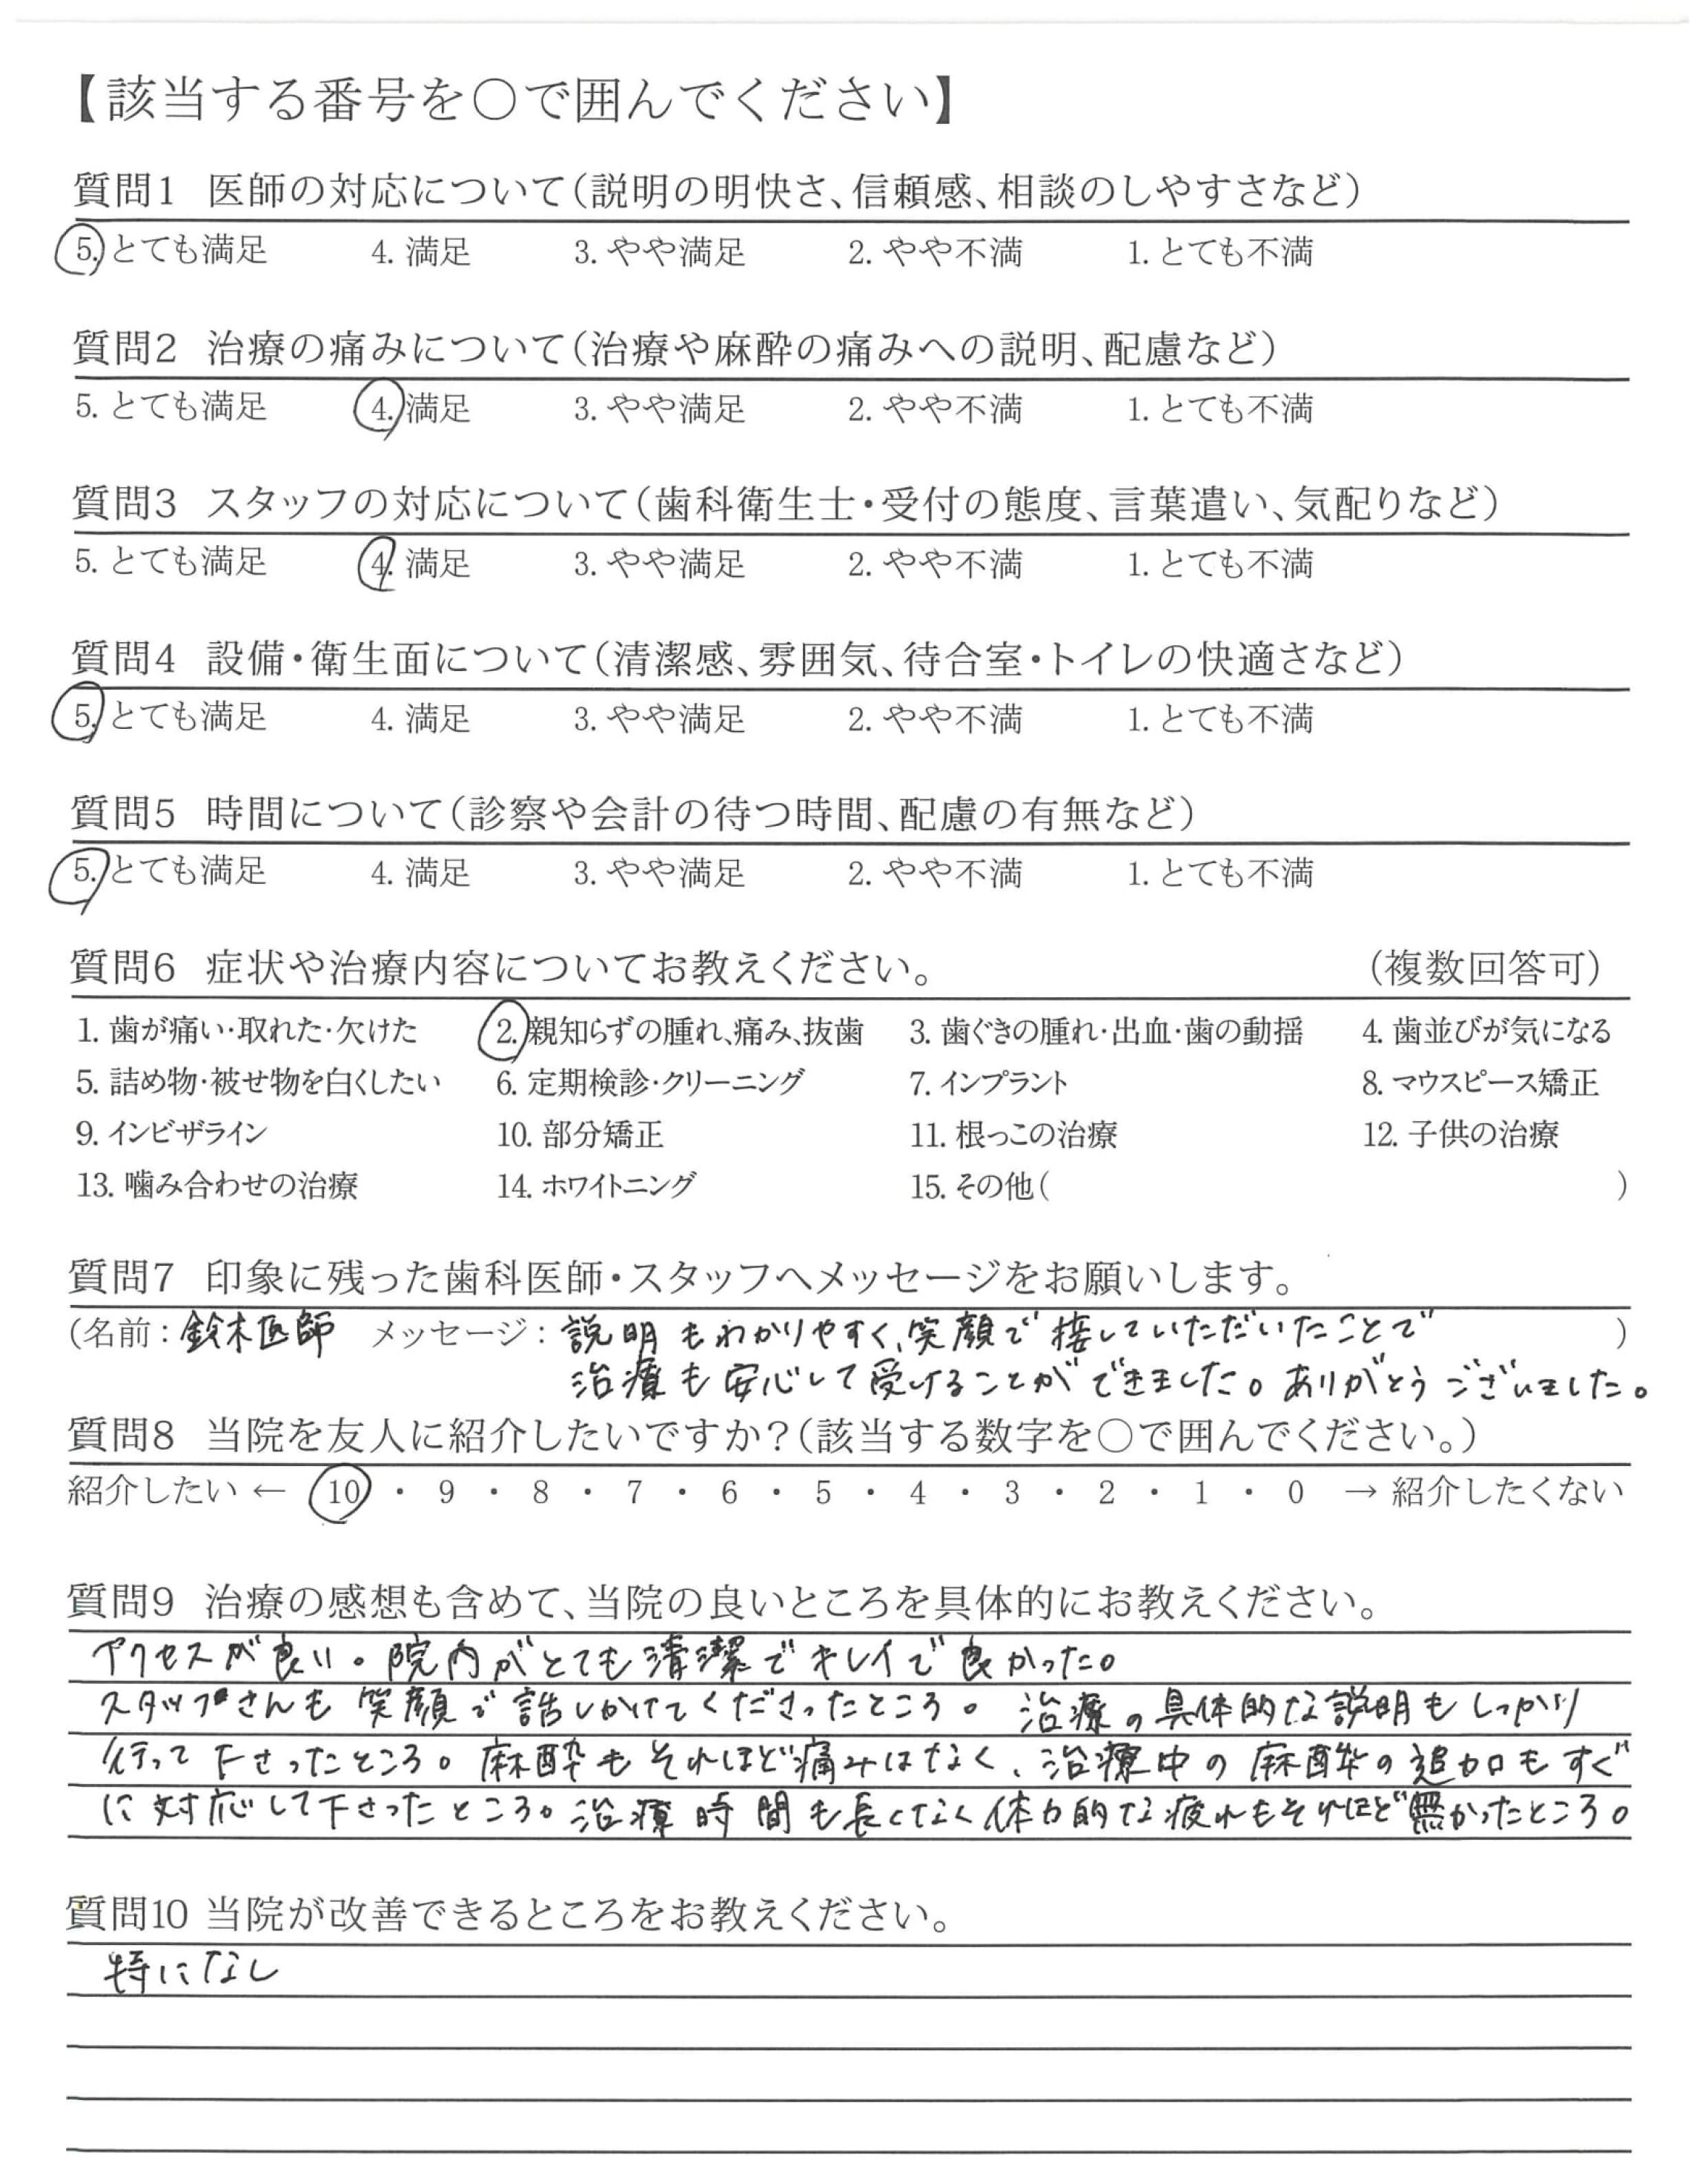 【該当する番号を〇で囲んでください】
質問1 医師の対応について(説明の明快さ、信頼感、相談のしやすさなど)
5. とても満足 4. 満足 3. やや満足 2. やや不満 1. とても不満
質問2 治療の痛みについて(治療や麻酔の痛みへの説明、配慮など)
5. とても満足 4. 満足 3. やや満足 2. やや不満 1. とても不満
質問3 スタッフの対応について(歯科衛生士・受付の態度、言葉遣い、気配りなど)
5. とても満足 4. 満足 3. やや満足 2. やや不満 1. とても不満
質問4 設備・衛生面について(清潔感、雰囲気、待合室・トイレの快適さなど)
5. とても満足 4. 満足 3. やや満足 2. やや不満 1. とても不満
質問5 時間について(診察や会計の待つ時間、配慮の有無など)
5. とても満足 4. 満足 3. やや満足 2. やや不満 1. とても不満
質問6 症状や治療内容についてお教えください。 (複数回答可)
1. 歯が痛い・取れた・欠けた 2. 親知らずの腫れ、痛み、抜歯 3. 歯ぐきの腫れ・出血・歯の動揺 4. 歯並びが気になる
5. 詰め物・被せ物を白くしたい 6. 定期検診・クリーニング 7. インプラント 8. マウスピース矯正
9. インビザライン 10. 部分矯正 11. 根っこの治療 12. 子供の治療
13. 噛み合わせの治療 14. ホワイトニング 15. その他( )
質問7 印象に残った歯科医師・スタッフへメッセージをお願いします。
(名前：鈴木医師 メッセージ：説明もわかりやすく、笑顔で接していただいたことで )
治療も安心して受けることができました。ありがとうございました。
質問8 当院を友人に紹介したいですか？(該当する数字を〇で囲んでください。)
紹介したい ← 10 ・ 9 ・ 8 ・ 7 ・ 6 ・ 5 ・ 4 ・ 3 ・ 2 ・ 1 ・ 0 → 紹介したくない
質問9 治療の感想も含めて、当院の良いところを具体的にお教えください。
アクセスが良い。院内がとても清潔でキレイで良かった。
スタッフさんも笑顔で話しかけてくださったところ。治療の具体的な説明もしっかり
行って下さったところ。麻酔もそれほど痛みはなく、治療中の麻酔の追加もすぐ
に対応して下さったところ。治療時間も長くなく体力的な疲れもそれほど無かったところ。
質問10 当院が改善できるところをお教えください。
特になし